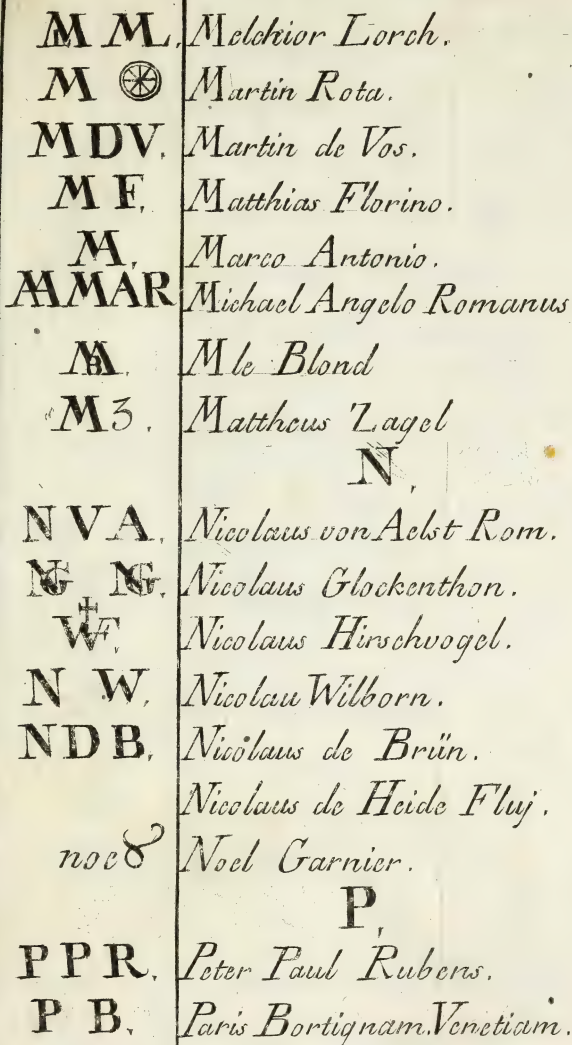 M ML. Melchior Lorch.
M Martin Rota.
MDV. Martin de Vos.
M F. Matthias Florino.
MA. Marco Antonio.
MMAR Michael Angelo Romanus
MB. M le Blond
M3. Mattheus Zagel
N.
NVA. Nicolaus von Aelst Rom.
NG NG. Nicolaus Glockenthon.
Nicolaus Hirschvogel.
N W. Nicolau Wilborn.
NDB. Nicolaus de Brün.
Nicolaus de Heide Fluj.
noe Noel Garnier.
P.
PPR. Peter Paul Rubens.
P B. Paris Bortignam. Venetiam.